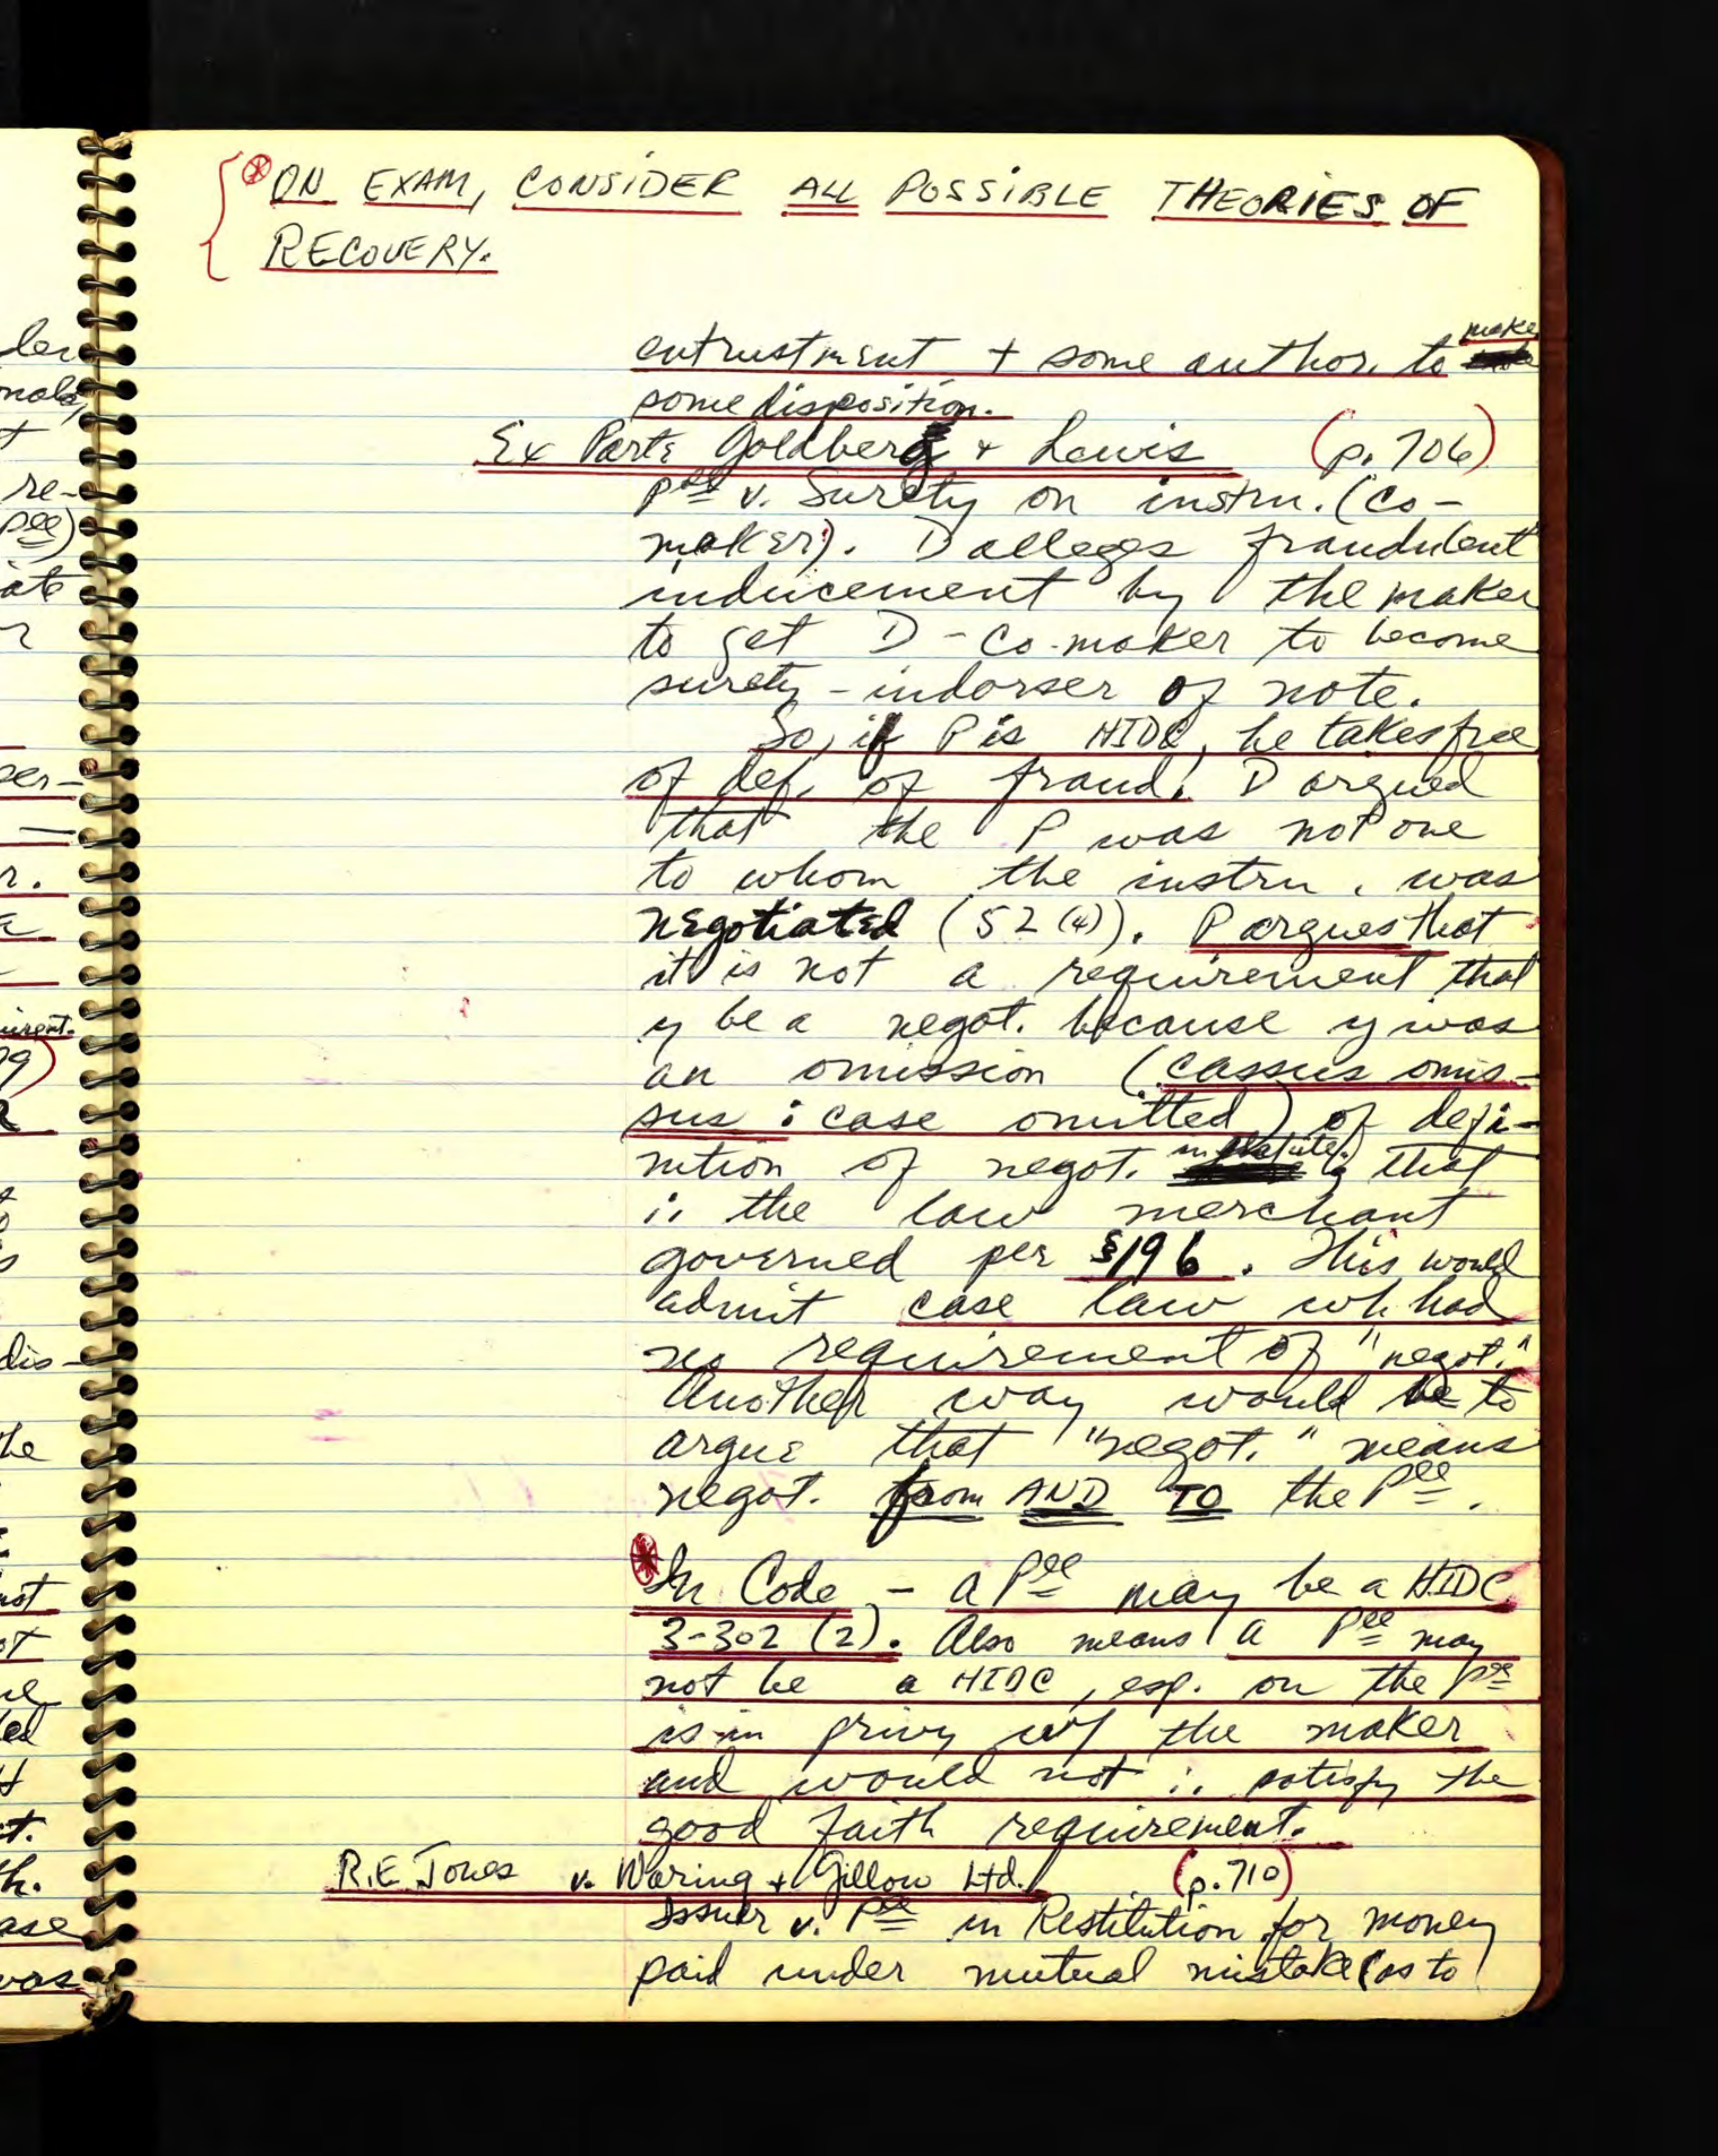 ler
ⓧ ON EXAM, CONSIDER ALL POSSIBLE THEORIES OF
RECOVERY.
entrustment + some author. to make
some disposition.
Ex Parte Goldberg + Lewis (p. 706)
Pee v. Surety on instru. (co-
maker). D alleges fraudulent
inducement by the maker
to get D - Co-maker to become
surety - indorser of note.
So, if P is HIDC, he takes free
of def. of fraud! D argued
that the P was not one
to whom the instru. was
negotiated (52(4)). P argues that
it is not a requirement that
y be a negot. because y was
an omission (cassus omis-
sus : case omitted) of defi-
nition of negot. in statute; that
∴ the law merchant
governed per §196. This would
admit case law wh. had
no requirement of "negot."
Another way would be to
argue that "negot." means
negot. from AND TO the Pee.
In Code - a Pee may be a HIDC
3-302 (2). Also means a Pee may
not be a HIDC, esp. on the Pee
is in privy w/ the maker
and would not ∴ satisfy the
good faith requirement.
R.E. Jones v. Waring + Gillow Ltd. (p. 710)
Issuer v. Pee in Restitution for money
paid under mutual mistake (as to
re-
Pee)
ate
per-
dis-
he
not
ase
was